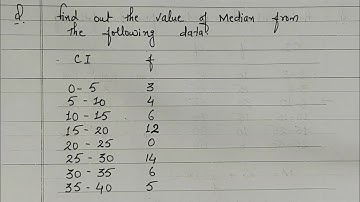 Q. find out the value of Median from
the following data
CI f
0 - 5 3
5 - 10 4
10 - 15 6
15 - 20 12
20 - 25 0
25 - 30 14
30 - 35 6
35 - 40 5